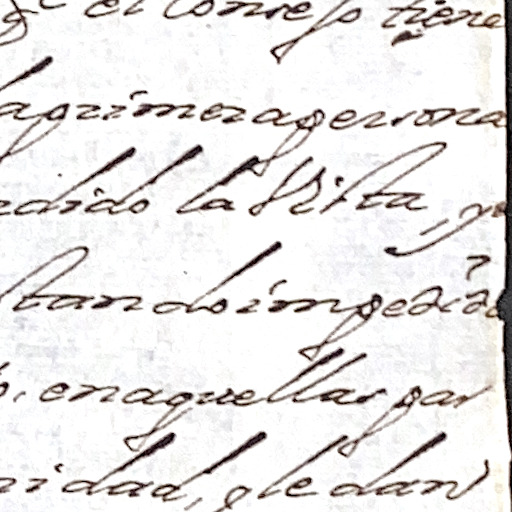 qe el Consejo tiene
la primera persona
rdido la Vista, y
standoimpedido
o, enaquellas par
nidad, q le dan